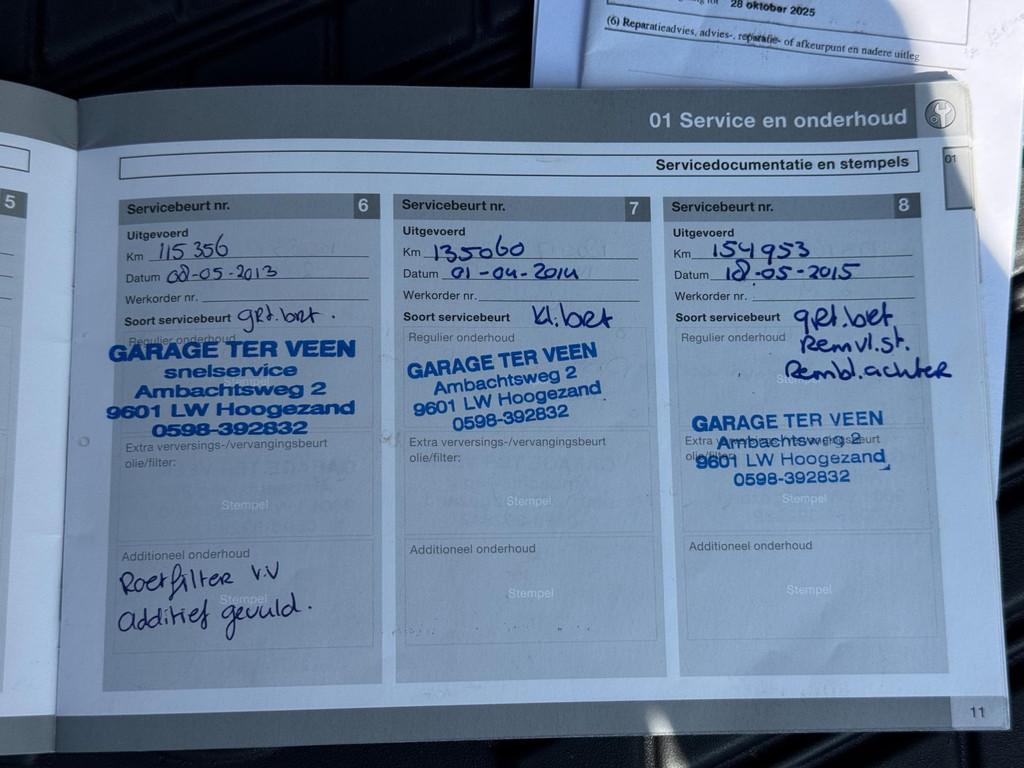 28 oktober 2025
(6) Reparatieadvies, advies-, reparatie- of afkeurpunt en nadere uitleg
01 Service en onderhoud
Servicedocumentatie en stempels
01
5
Servicebeurt nr. 6
Uitgevoerd
Km 115 356
Datum 08-05-2013
Werkorder nr.
Soort servicebeurt grt.brt.
Regulier onderhoud
GARAGE TER VEEN
snelservice
Ambachtsweg 2
9601 LW Hoogezand
0598-392832
Extra verversings-/vervangingsbeurt
olie/filter:
Stempel
Additioneel onderhoud
Roetfilter v.v
Stempel
additief gevuld.
Servicebeurt nr. 7
Uitgevoerd
Km 135060
Datum 01-04-2014
Werkorder nr.
Soort servicebeurt kl.brt
Regulier onderhoud
GARAGE TER VEEN
Ambachtsweg 2
9601 LW Hoogezand
0598-392832
Extra verversings-/vervangingsbeurt
olie/filter:
Stempel
Additioneel onderhoud
Stempel
Servicebeurt nr. 8
Uitgevoerd
Km 154953
Datum 18-05-2015
Werkorder nr.
Soort servicebeurt grt.brt
Regulier onderhoud
Remvl.st.
Rembl.achter
GARAGE TER VEEN
Ambachtsweg 2
Extra verversings-/vervangingsbeurt
9601 LW Hoogezand
olie/filter:
0598-392832
Stempel
Additioneel onderhoud
Stempel
11